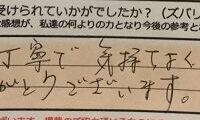 受けられていかがでしたか？（ズバリ
感想が、私達の何よりの力となり今後の参考と
丁寧で 気持てよく
がとうございます。